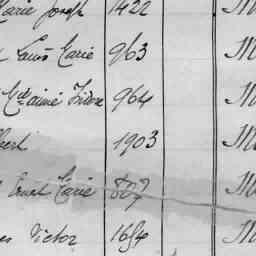 Marie Joseph 1422 M
Louis Marie 963 M
Aimé Isidore 964 M
bert 1903 M
Ernest Marie 807 M
es Victor 1654 M